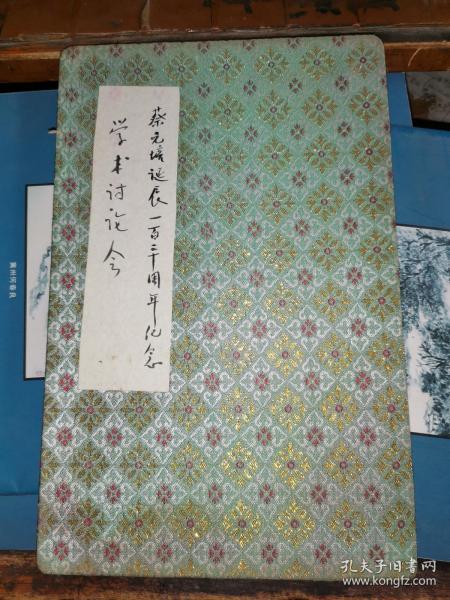 蔡元培诞辰一百二十周年纪念
学术讨论会
孔夫子旧书网
www.kongfz.com